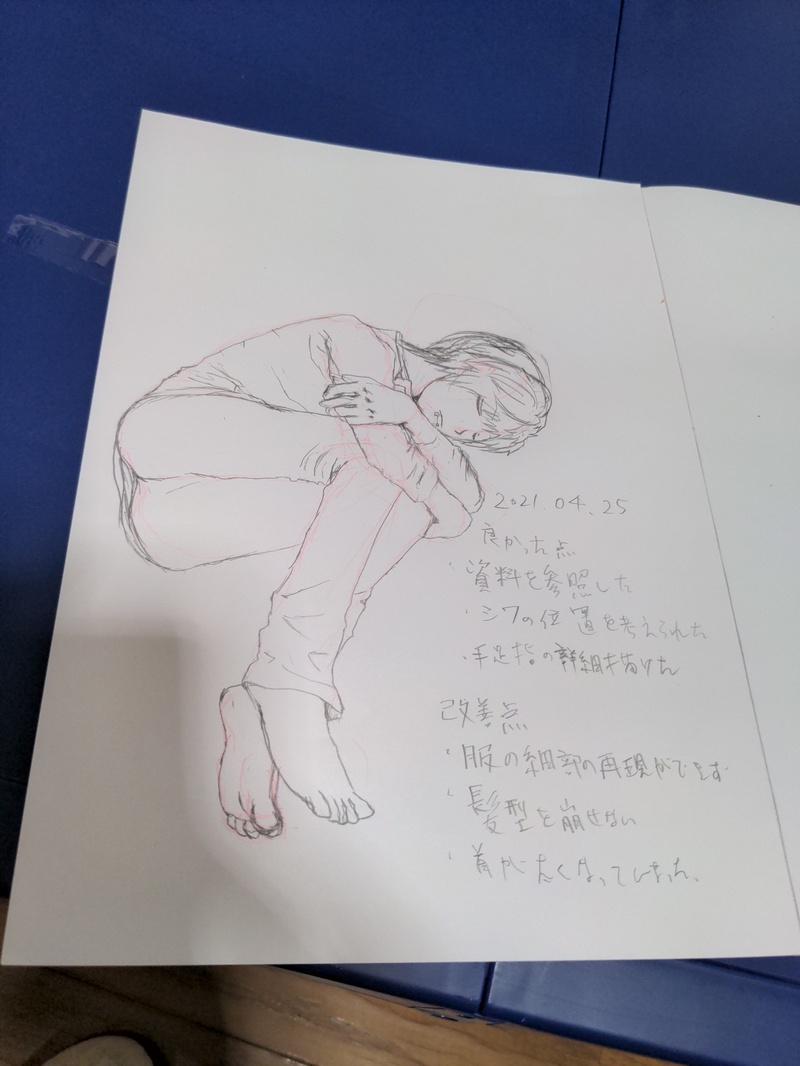 2021.04.25
良かった点
・資料を参照した
・シワの位置を考えられた
・手足指の詳細描けた
改善点
・服の細部の再現ができず
・髪型を崩せない
・首が太くなってしまった、